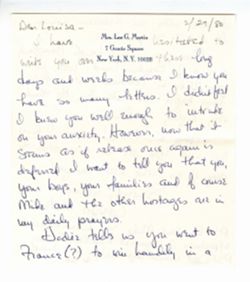 2/29/80
Dear Louisa—
Mrs. Lee G. Martin
7 Gracie Square
New York, N.Y. 10028
I have hesitated to
write you on these long
days and weeks because I know you
have so many letters. I didn't feel
I knew you well enough to intrude
on your anxiety. However, now that it
seems as if release once again is
deferred I want to tell you that you,
your boys, your families and of course
Mike and the other hostages are in
my daily prayers.
tells us you went to
France(?) to win handily in a